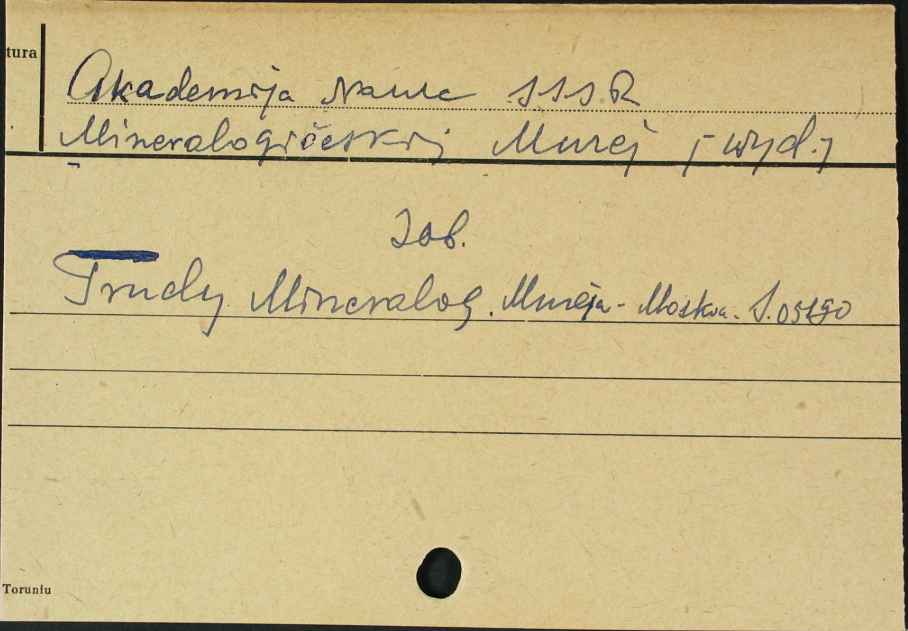 tura
Akademija Nauk SSSR
Mineralogičeskij Muzej [wyd.]
Zob.
Trudy Mineralog. Muzeja - Moskva. S.05190
Toruniu